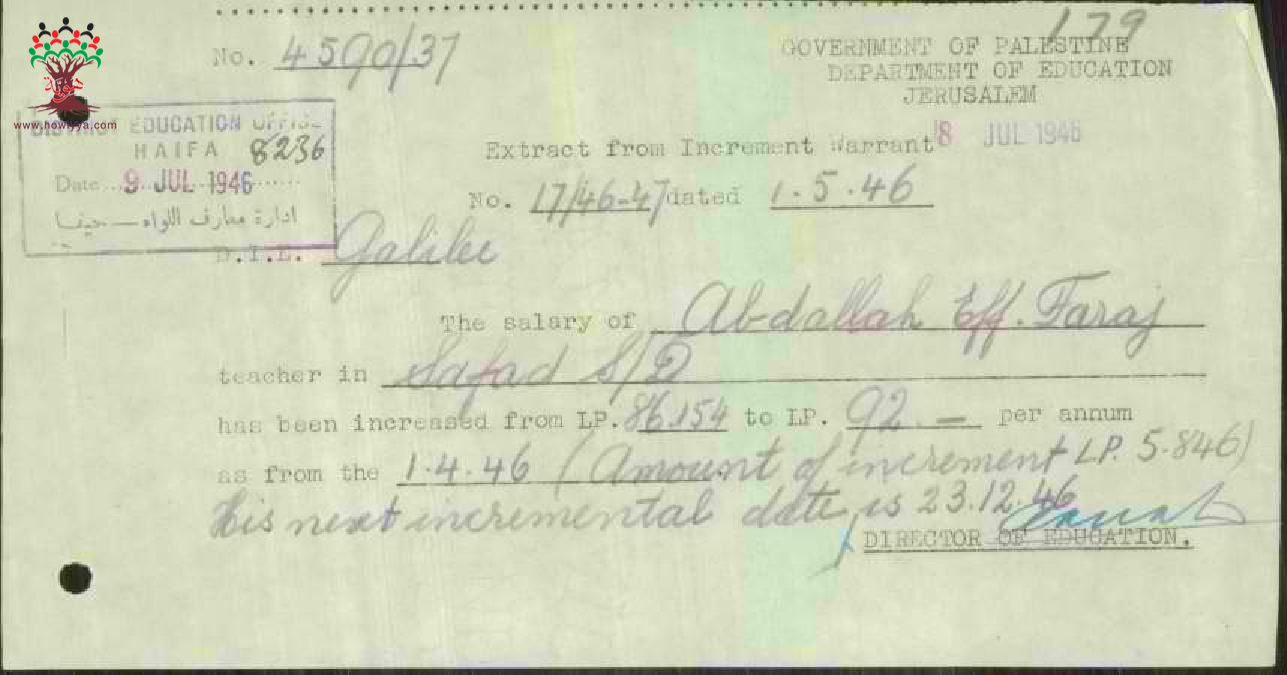 179
No. 4590/37
GOVERNMENT OF PALESTINE
DEPARTMENT OF EDUCATION
JERUSALEM
هوية
www.howiyya.com
DISTRICT EDUCATION OFFICE
HAIFA 8236
Date 9 JUL 1946
ادارة معارف اللواء — حيفا
Extract from Increment Warrant 8 JUL 1946
No. 17/46-47 dated 1.5.46
D.I.E. Galilee
The salary of Abdallah Eff. Faraj
teacher in Safad S/D
has been increased from LP. 86.154 to LP. 92.— per annum
as from the 1.4.46 (Amount of increment LP. 5.846)
His next incremental date is 23.12.46
DIRECTOR OF EDUCATION.